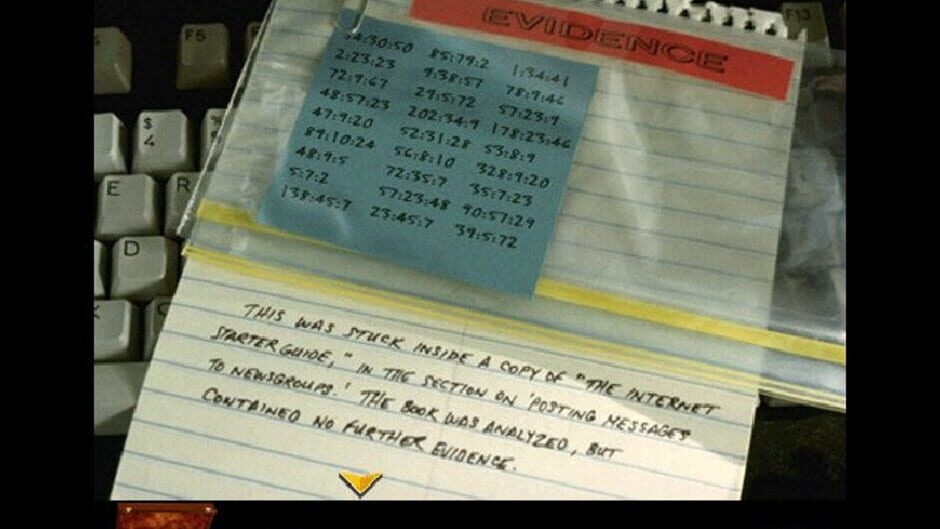 EVIDENCE
F5
F13
$
4
E
R
D
34:30:50 85:79:2 1:34:41
2:23:23 9:38:57 78:9:46
72:9:67 29:5:72 57:23:9
48:57:23 202:34:9 178:23:46
47:9:20 52:31:28 53:8:9
89:10:24 56:8:10 328:9:20
48:9:5 72:35:7 35:7:23
5:7:2 57:23:48 90:57:29
138:45:7 23:45:7 39:5:72
THIS WAS STUCK INSIDE A COPY OF "THE INTERNET
STARTER GUIDE," IN THE SECTION ON 'POSTING MESSAGES
TO NEWSGROUPS.' THE BOOK WAS ANALYZED, BUT
CONTAINED NO FURTHER EVIDENCE.